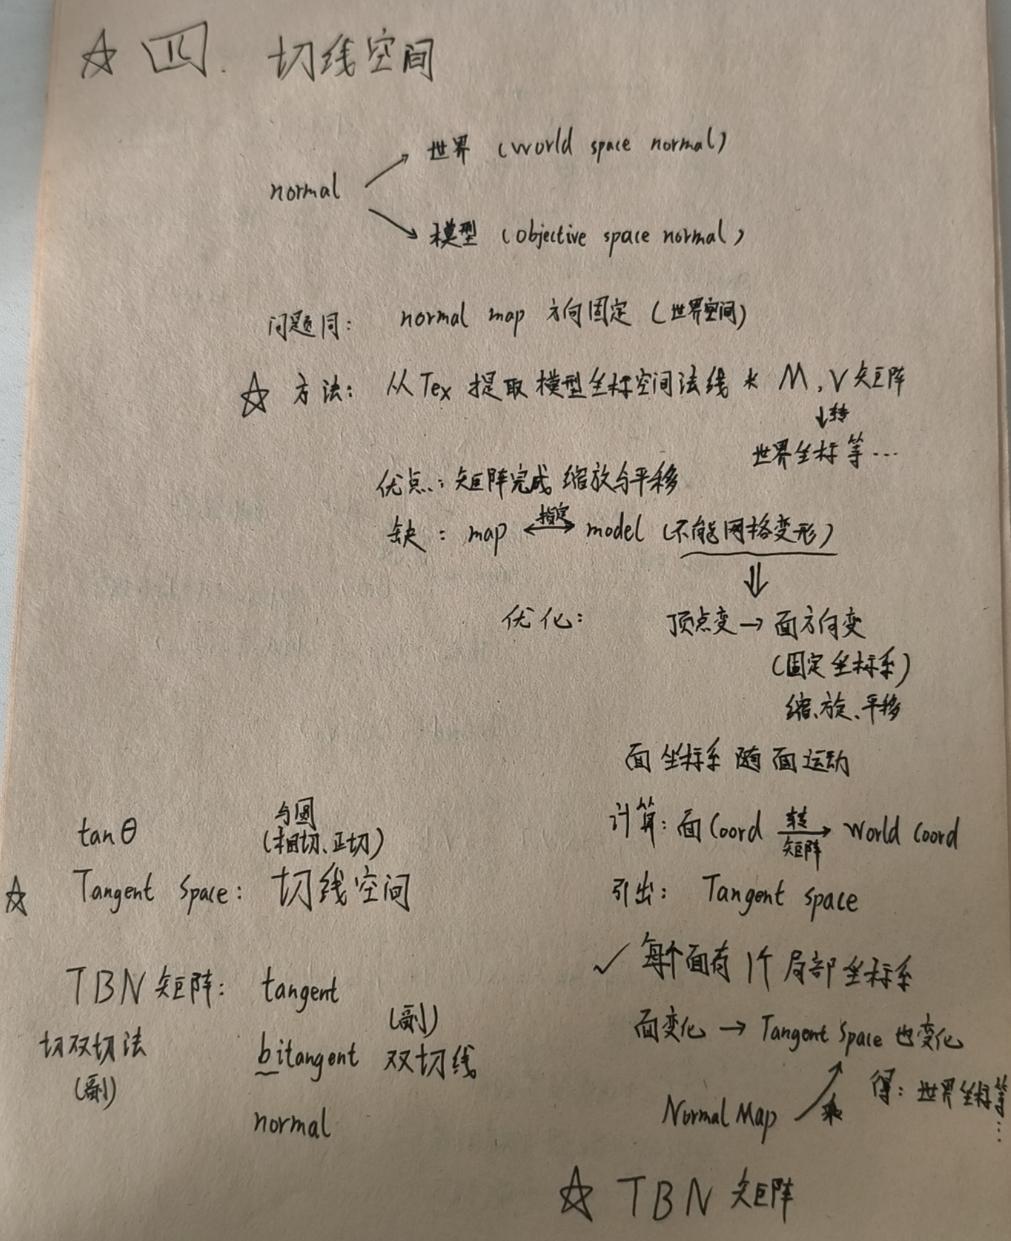 ☆ 四. 切线空间
normal
↗ 世界 (World space normal)
↘ 模型 (objective space normal)
问题同: normal map 方向固定 (世界空间)
☆ 方法: 从Tex 提取模型坐标空间法线 * M, V 矩阵
↓转
世界坐标等...
优点: 矩阵完成缩放与平移
缺: map ←指定→ model (不能网格变形)
⇓
优化: 顶点变 → 面方向变
(固定坐标系)
缩、旋、平移
面坐标系随面运动
计算: 面Coord 转→矩阵 World Coord
引出: Tangent space
✓ 每个面有1个局部坐标系
面变化 → Tangent Space 也变化
Normal Map ↗乘 得: 世界坐标等...
☆ TBN 矩阵
与圆
tanθ (相切、正切)
☆ Tangent Space: 切线空间
TBN矩阵: tangent
切双切法
(副)
(副)
bitangent 双切线
normal